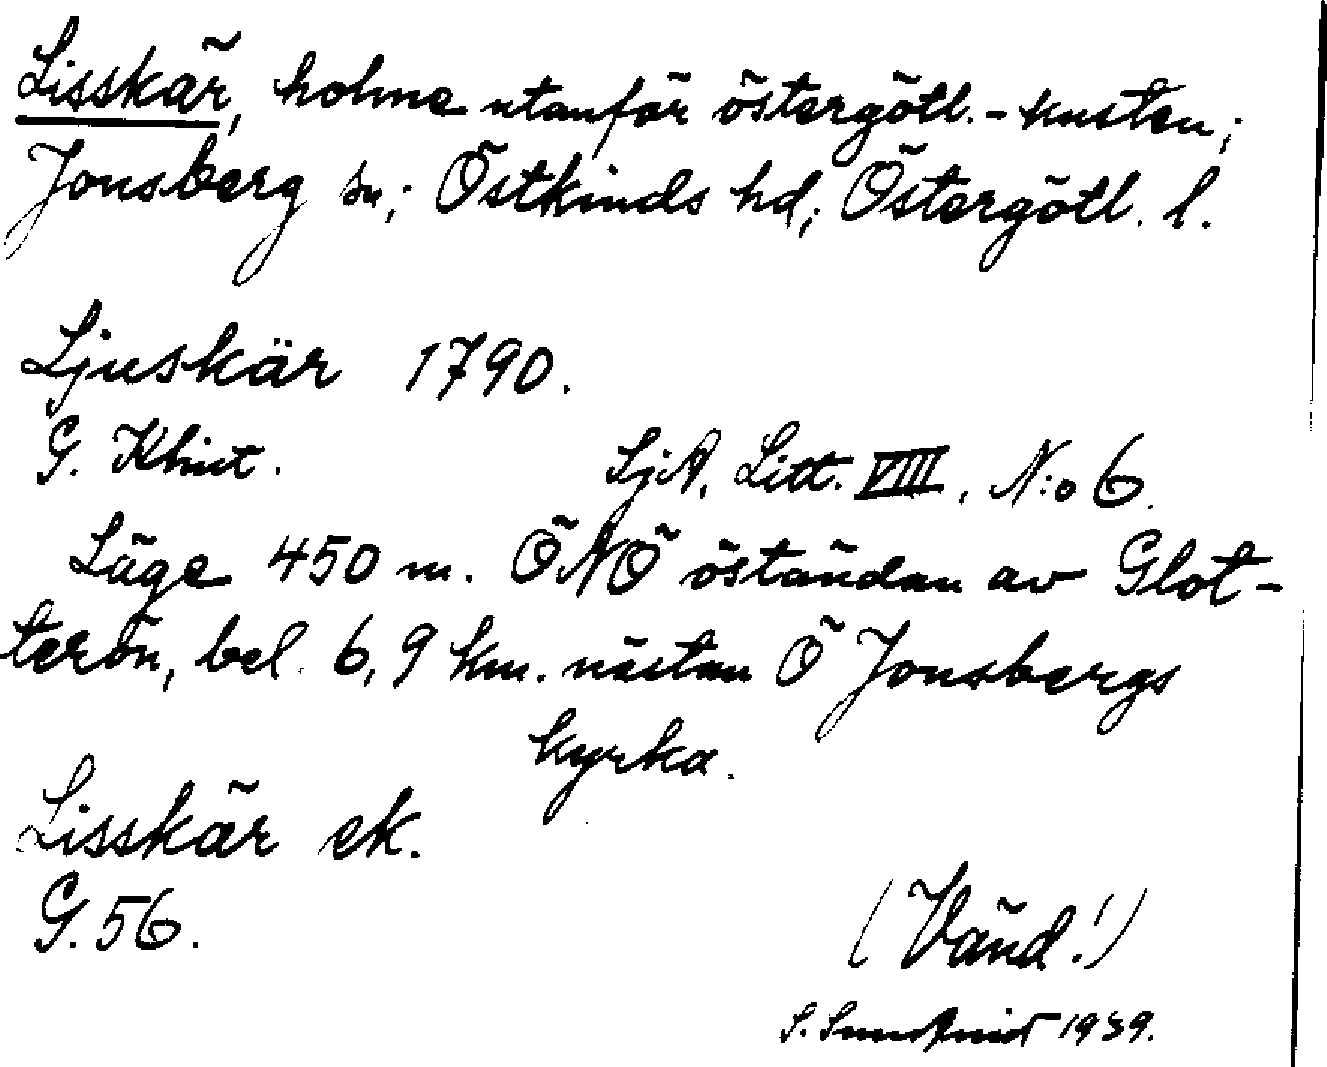 Lisskär, holme utanför östergötl.-kusten;
Jonsberg sn; Östkinds hd; Östergötl. l.
Ljuskär 1790.
G. Klint. SjA, Litt. VIII, N:o 6.
Läge 450 m. ÖNÖ öständan av Glot-
terön, bel. 6,9 km. nästan Ö Jonsbergs
kyrka.
Lisskär ek.
G. 56.
(Vänd!)
S. Sundqvist 1939.